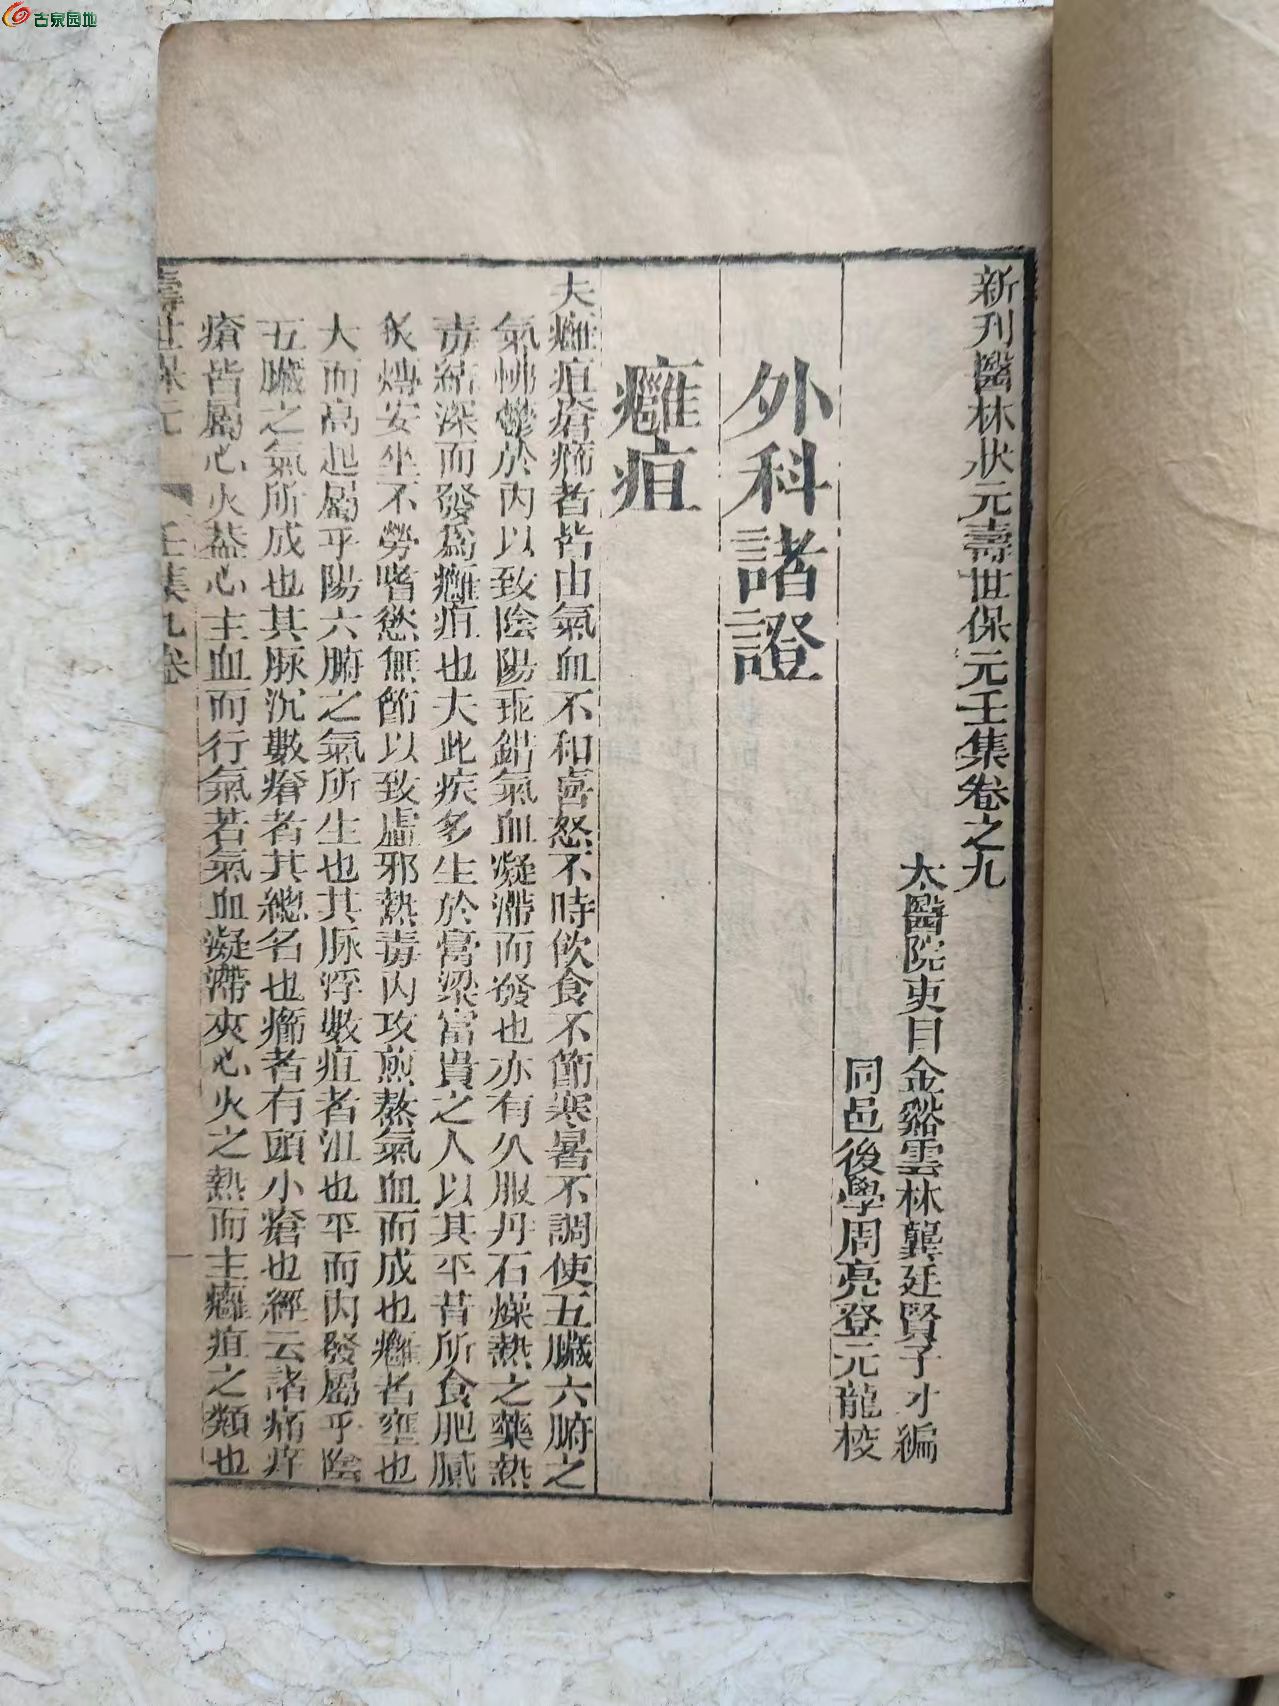 古泉园地
新刋醫林狀元壽世保元壬集卷之九
太醫院吏目金谿雲林龔廷賢子才編
同邑後學周亮登元龍校
外科諸證
癰疽
夫癰疽瘡癤者皆由氣血不和喜怒不時飲食不節寒暑不調使五臟六腑之
氣怫鬱於內以致陰陽乖錯氣血凝滯而發也亦有久服丹石燥熱之藥熱
毒結深而發為癰疽也夫此疾多生於膏粱富貴之人以其平昔所食肥膩
炙煿安坐不勞嗜慾無節以致虛邪熱毒內攻煎熬氣血而成也癰者壅也
大而高起屬乎陽六腑之氣所生也其脉浮數疽者沮也平而內發屬乎陰
五臟之氣所成也其脉沉數瘡者其總名也癤者有頭小瘡也經云諸痛痒
瘡皆屬心火葢心主血而行氣若氣血凝滯夾心火之熱而主癰疽之類也
壽世保元 壬集九卷 一